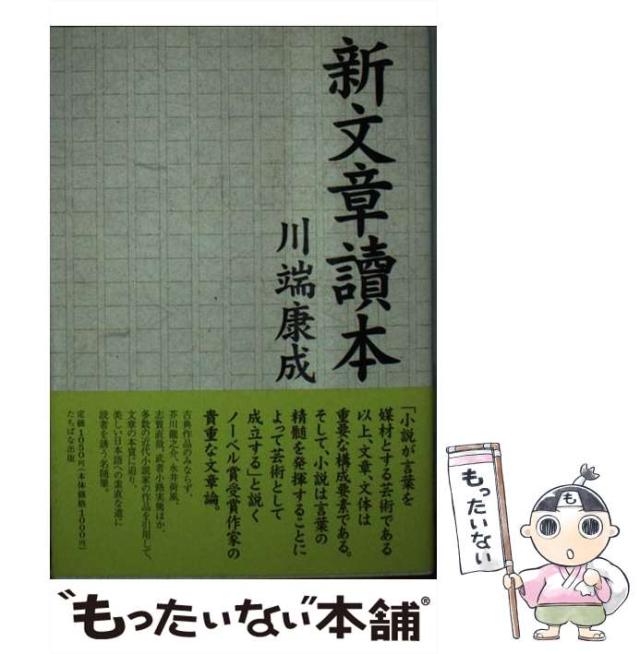 新文章讀本
川端康成
「小説が言葉を
媒材とする芸術である
以上、文章、文体は
重要な構成要素である。
そして、小説は言葉の
精髄を発揮することに
よって芸術として
成立する」と説く
ノーベル賞受賞作家の
貴重な文章論。
古典作品のみならず、
芥川龍之介、永井荷風、
志賀直哉、武者小路実篤ほか、
多数の近代小説家の作品を引用して、
文章の本質に迫り、
美しい日本語への素直な道に
読者を誘う名随筆。
定価1050円(本体価格1000円)
たちばな出版
も
もったいない
"もったいない"本舗®